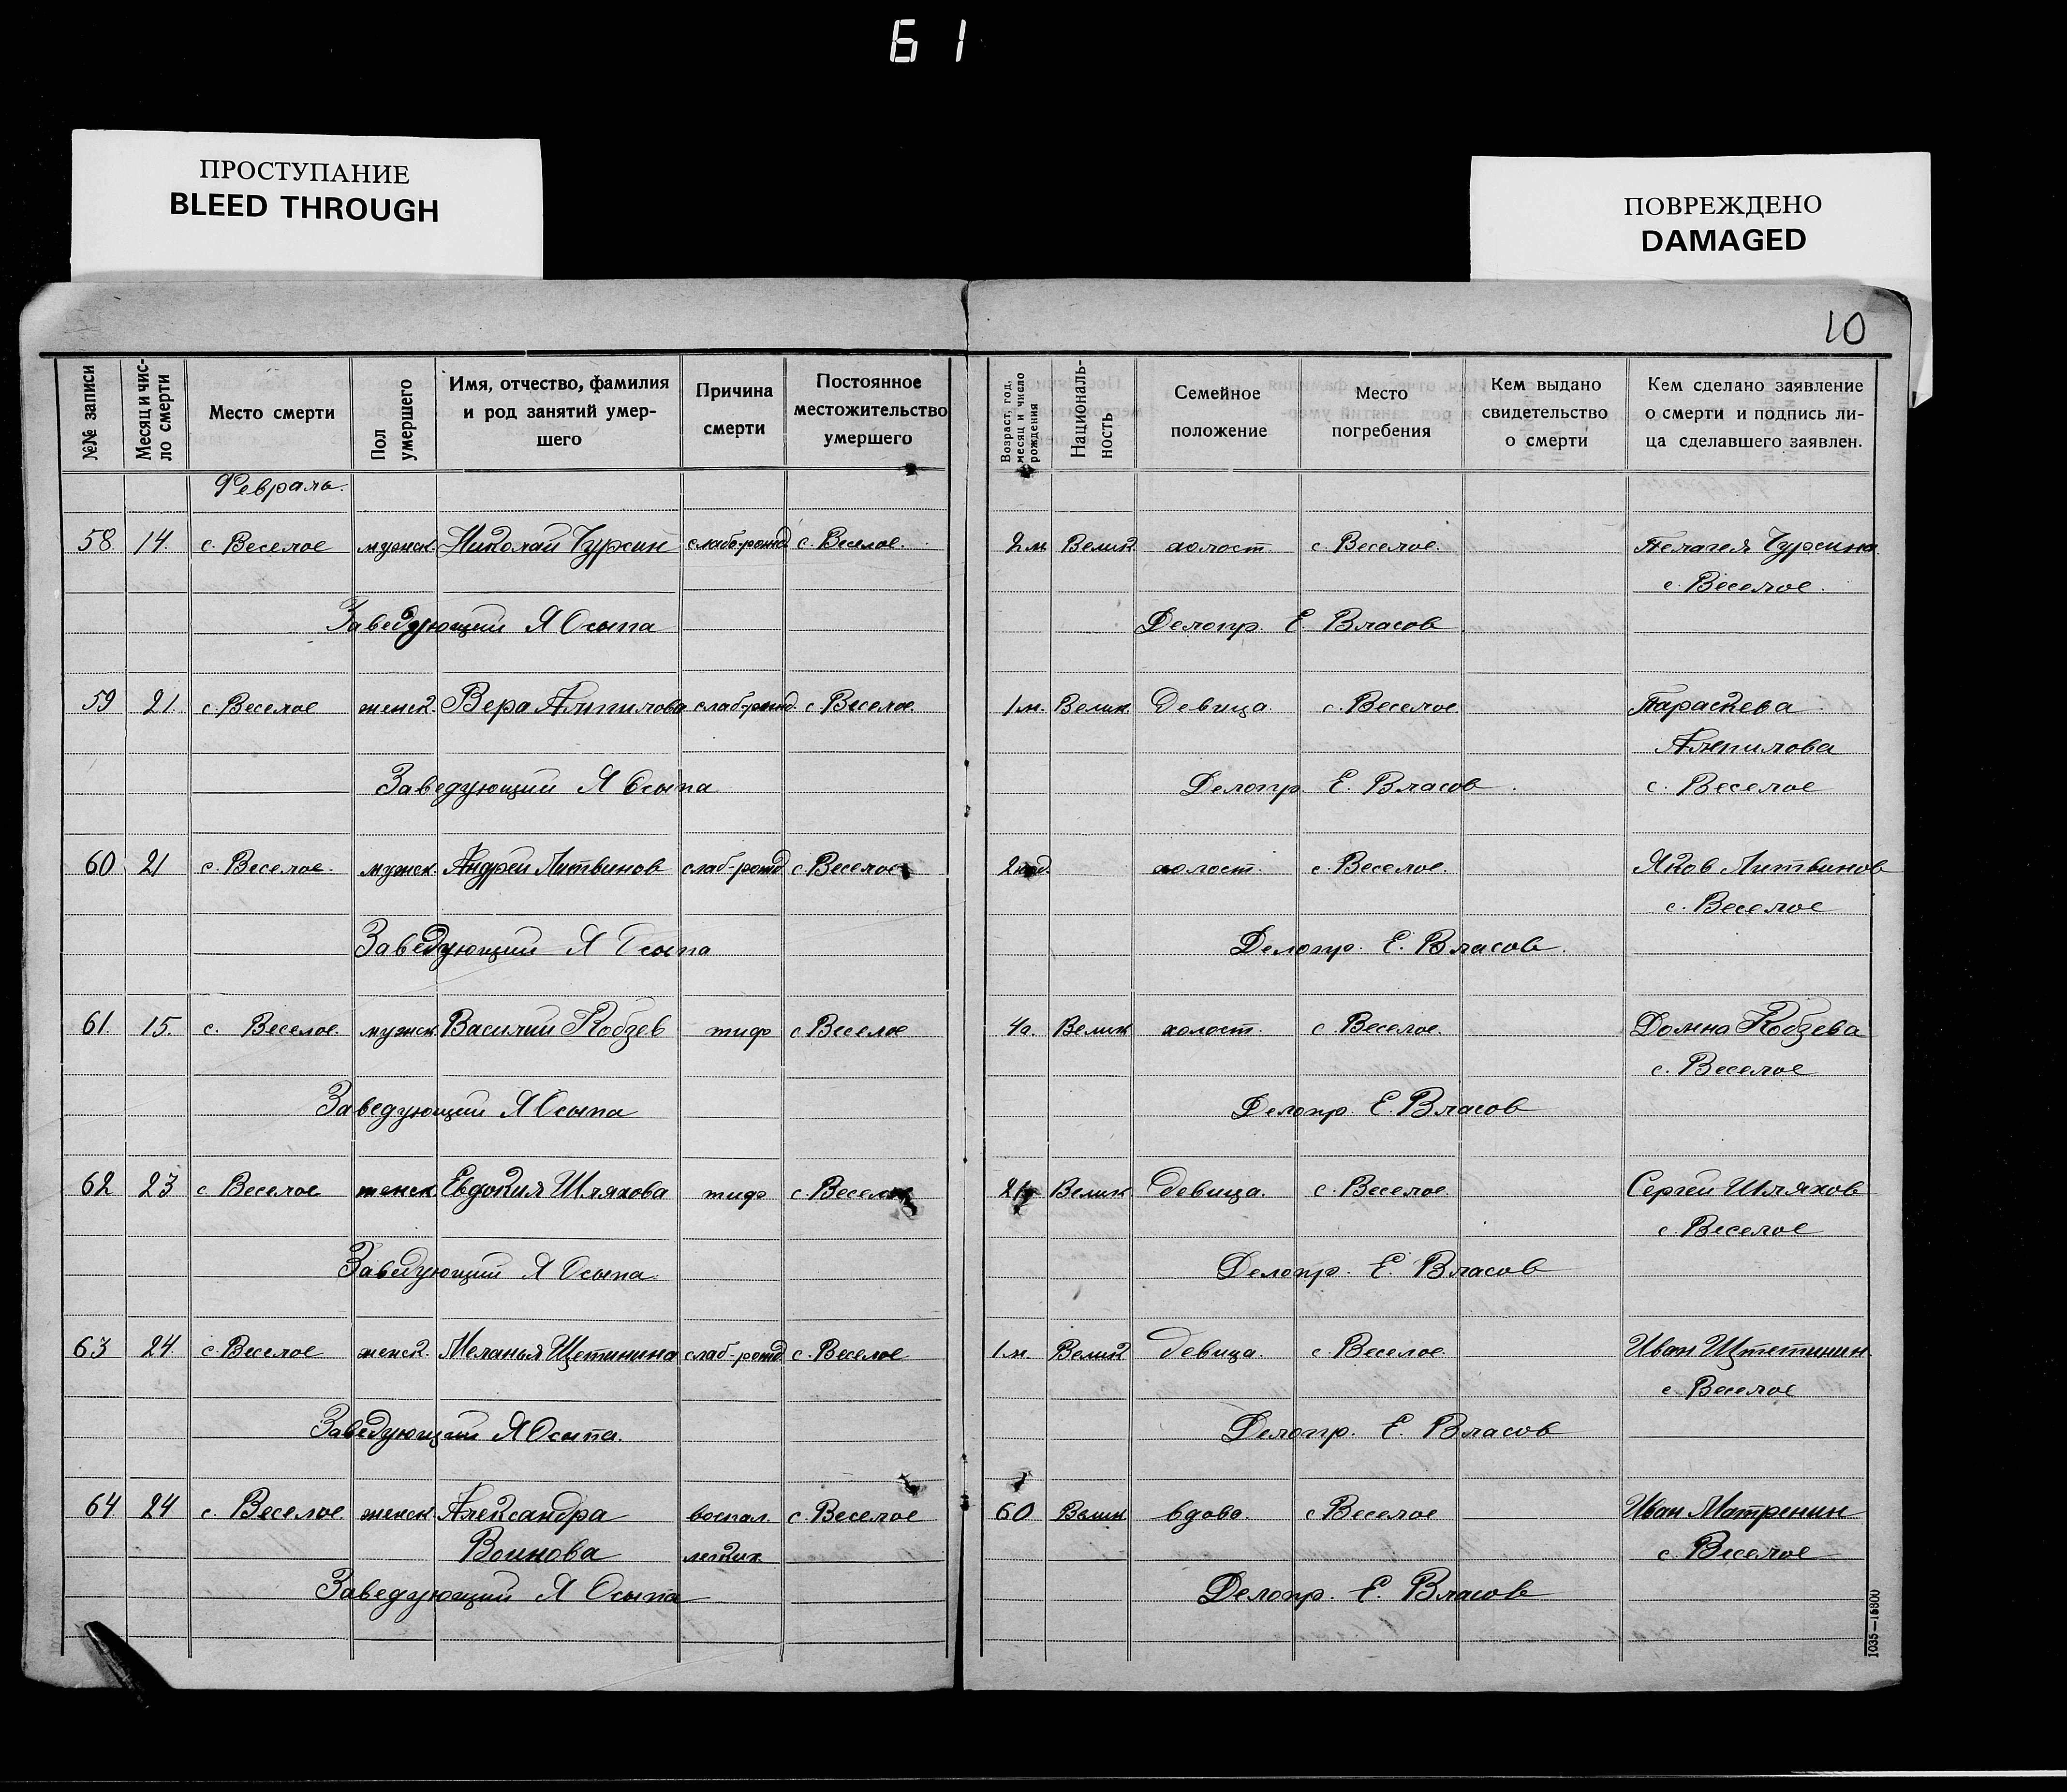 61
ПРОСТУПАНИЕ
BLEED THROUGH
ПОВРЕЖДЕНО
DAMAGED
10
№№ записи
Месяц и чис-
ло смерти
Место смерти
Пол
умершего
Имя, отчество, фамилия
и род занятий умер-
шего
Причина
смерти
Постоянное
местожительство
умершего
Возраст, год,
месяц и число
рождения
Националь-
ность
Семейное
положение
Место
погребения
Кем выдано
свидетельство
о смерти
Кем сделано заявление
о смерти и подпись ли-
ца сделавшего заявлен.
Февраль.
58. 14. с. Веселое мужск. Николай Чурсин слаб-рожд с. Веселое. 2 м. Велик холост с. Веселое. Пелагея Чурсина
с. Веселое.
Заведующий Я Осыпа Делопр. Е. Власов
59 21. с. Веселое женск. Вера Алпилова слаб-рожд. с. Веселое. 1 м. Велик. девица. с. Веселое Параскева
Алпилова
Заведующий Я Осыпа Делопр. Е. Власов. с. Веселое
60 21 с. Веселое. мужск. Андрей Литвинов слаб-рожд с. Веселое холост. с. Веселое. Яков Литвинов
с. Веселое
Заведующий Я Осыпа Делопр. Е. Власов.
61. 15. с. Веселое. мужск. Василий Кобзев тиф с. Веселое 4 г. Велик холост. с. Веселое. Домна Кобзева
с. Веселое
Заведующий Я Осыпа Делопр. Е. Власов
62 23 с Веселое женск. Евдокия Шляхова тиф с. Веселое Велик девица. с. Веселое. Сергей Шляхов
с. Веселое
Заведующий Я Осыпа. Делопр. Е. Власов
63 24. с. Веселое женск. Меланья Щетинина слаб-рожд с. Веселое 1 м. Велик девица. с. Веселое. Иван Щтетинин.
с. Веселое
Заведующий Я Осыпа. Делопр. Е. Власов
64. 24 с. Веселое женск. Александра воспал. с. Веселое 60 Велик вдова. с Веселое Иван Матренин
Воинова легких с. Веселое
Заведующий Я Осыпа Делопр. Е. Власов
1035—15800